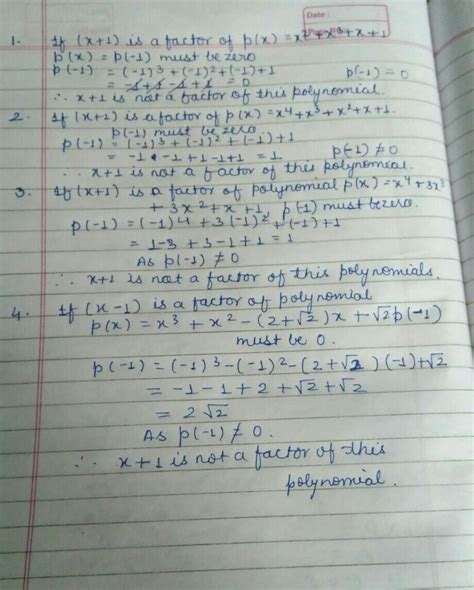 Date :
1. If (x+1) is a factor of p(x) = x³ + x² + x + 1
p(x) = p(-1) must be zero
p(-1) = (-1)³ + (-1)² + (-1) + 1
= -1 + 1 - 1 + 1 = 0 p(-1) = 0
∴ x+1 is not a factor of this polynomial.
2. If (x+1) is a factor of p(x) = x⁴ + x³ + x² + x + 1.
p(-1) must be zero.
p(-1) = (-1)³ + (-1)² + (-1) + 1
= -1 - 1 + 1 - 1 + 1 = 1 p(-1) ≠ 0
∴ x+1 is not a factor of this polynomial.
3. If (x+1) is a factor of polynomial p(x) = x⁴ + 3x³
+ 3x² + x + 1, p(-1) must be zero.
p(-1) = (-1)⁴ + 3(-1)² + (-1) + 1
= 1 - 3 + 3 - 1 + 1 = 1
As p(-1) ≠ 0
∴ x+1 is not a factor of this polynomials.
4. If (x-1) is a factor of polynomial
p(x) = x³ + x² - (2+√2)x + √2 p(-1)
must be 0.
p(-1) = (-1)³ - (-1)² - (2+√2)(-1) + √2
= -1 - 1 + 2 + √2 + √2
= 2√2
As p(-1) ≠ 0.
∴ x+1 is not a factor of this
polynomial.